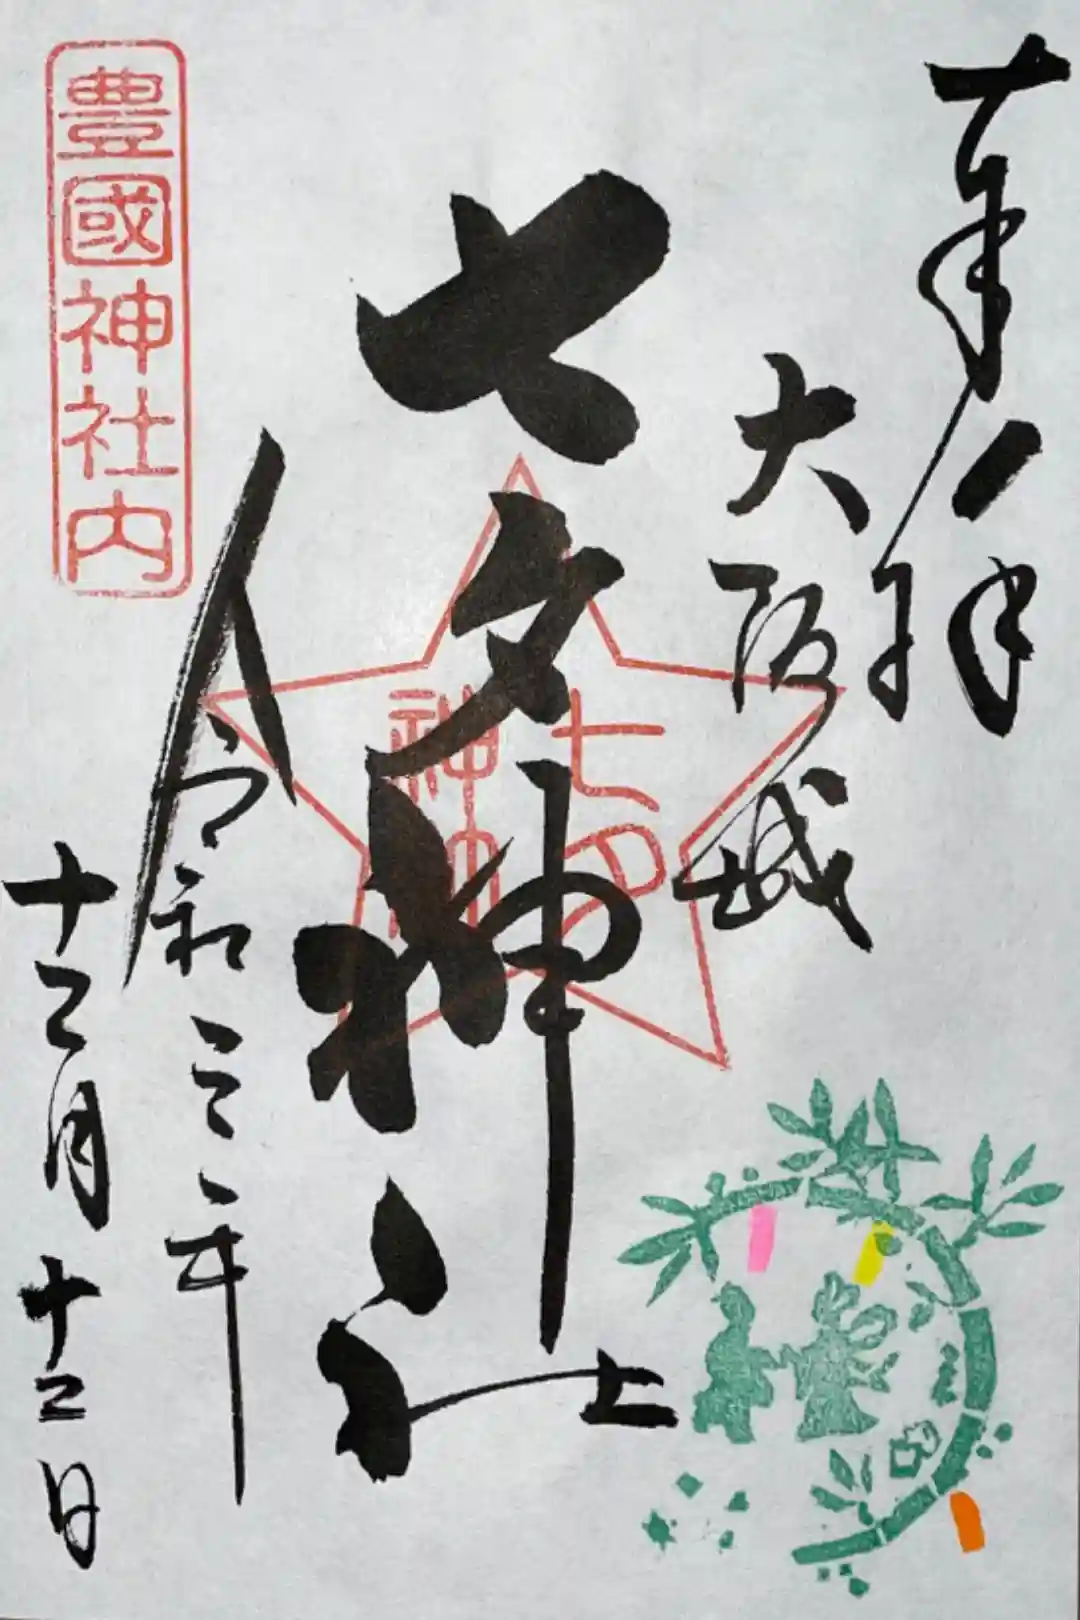 奉拝
大阪城
七夕神社
七夕
神社
令和三年
十二月十二日
豊國神社内